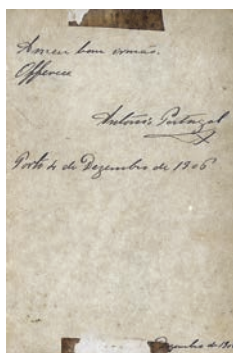 A meu bom irmão.
Offerece
Antonio Portugal
Porto 4 de Dezembro de 1906
Dezembro de 190